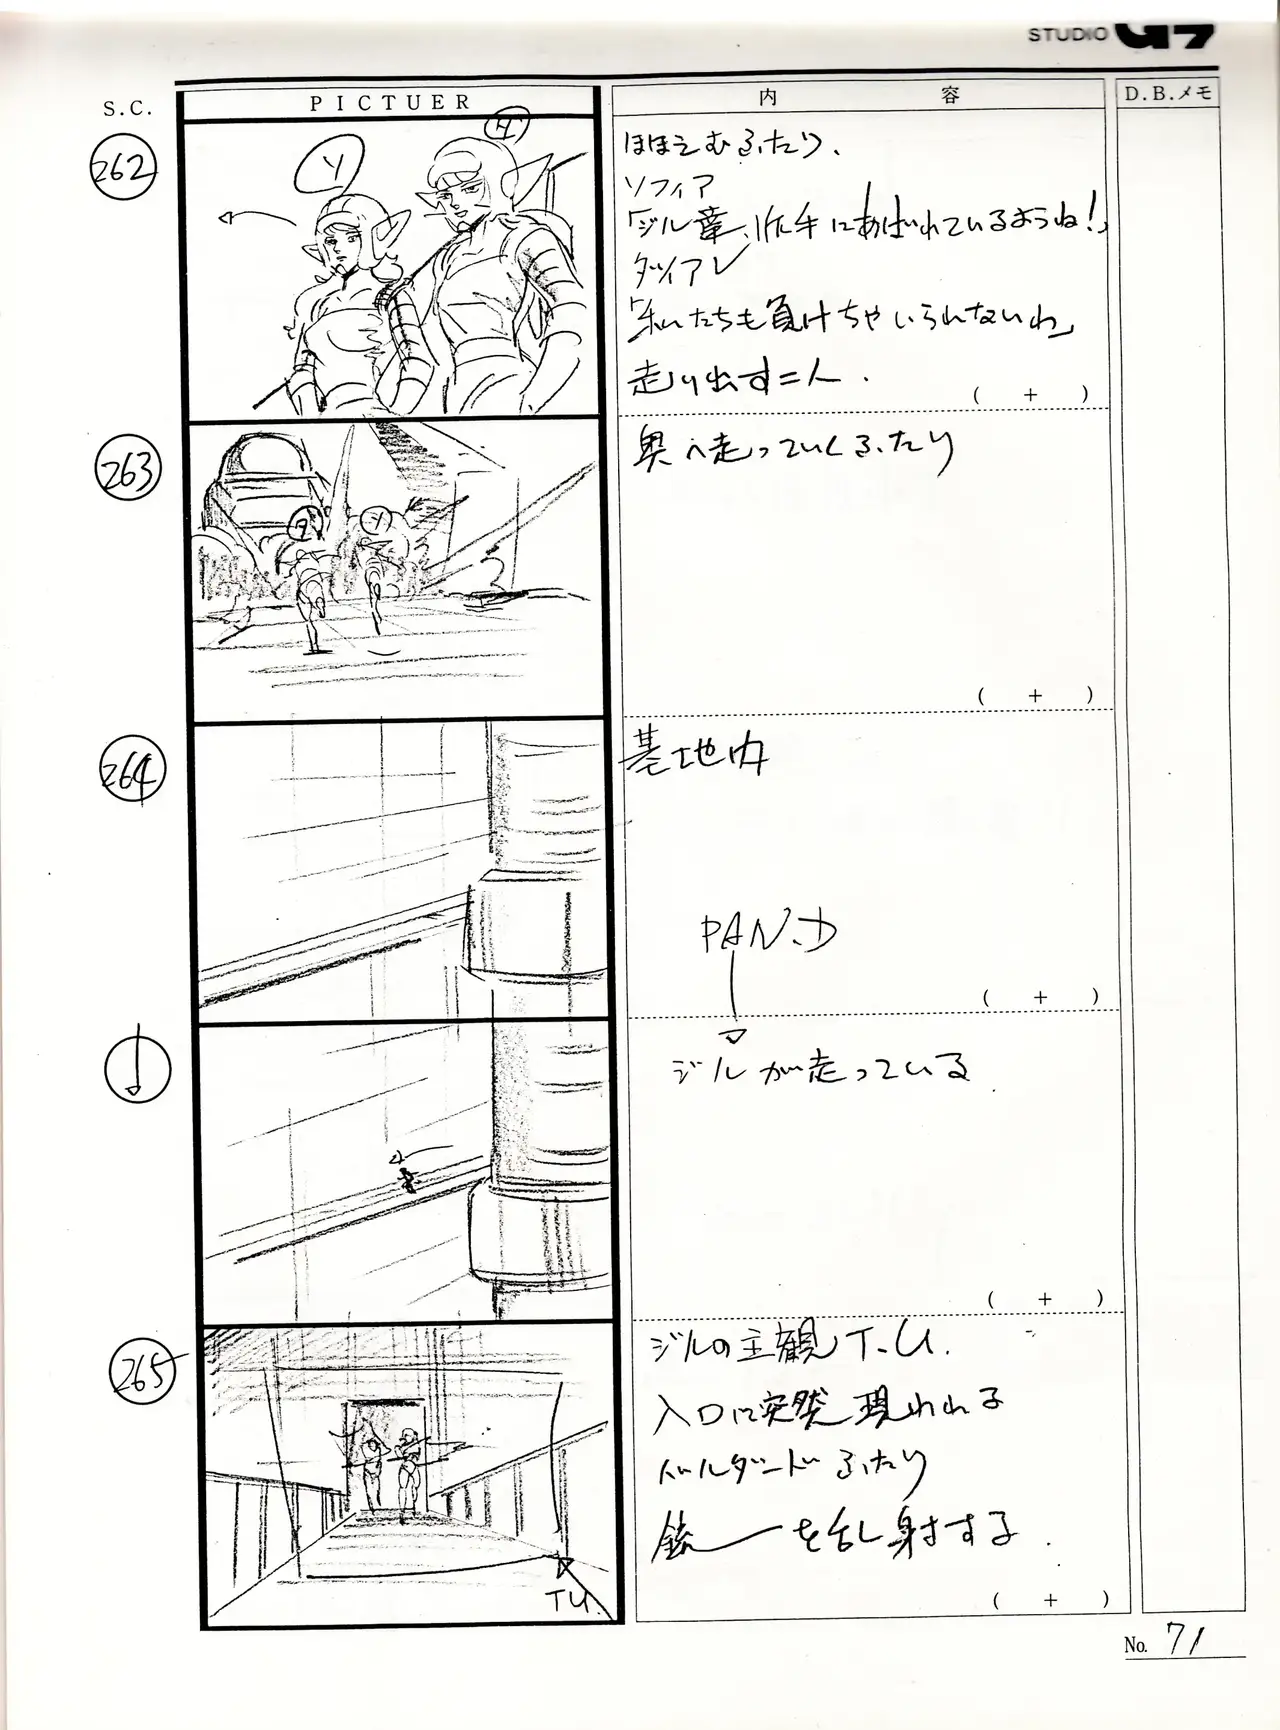 STUDIO G7
S.C.
PICTUER
内容
D.B.メモ
262
ソ
ダ
ほほえむふたり、
ソフィア
「ジル達、派手にあばれているようね!」
ダイアレ
「私たちも負けちゃいられないわ」
走り出す二人.
( + )
263
ダ
ソ
奥へ走っていくふたり
( + )
264
基地内
PAN.D
( + )
ジルが走っている.
( + )
265
ジルの主観 T.U.
入口に突然現われる
ふたり
銃ーを乱射する.
T.U.
( + )
No. 71